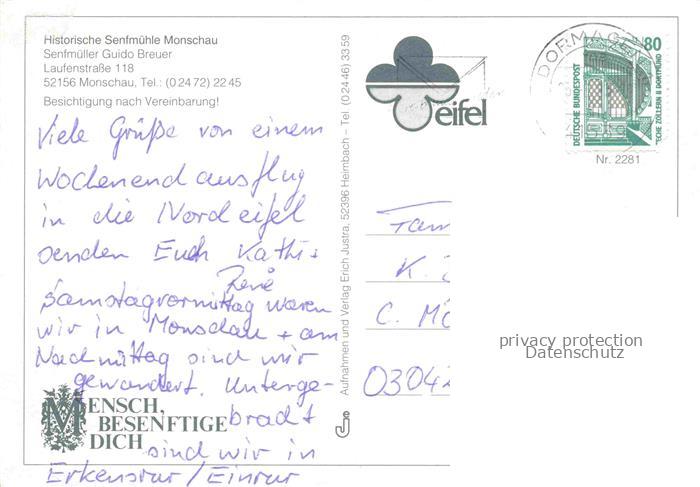 Historische Senfmühle Monschau
Senfmüller Guido Breuer
Laufenstraße 118
52156 Monschau, Tel.: (0 24 72) 22 45
Besichtigung nach Vereinbarung!
Viele Grüße von einem
Wochenendausflug
in die Nordeifel
senden Euch Kathi +
René
Samstagvormittag waren
wir in Monschau + am
Nachmittag sind wir
gewandert. Unterge-
bracht
sind wir in
Erkensrur/Einrur
MENSCH,
BESENFTIGE
DICH
Aufnahmen und Verlag Erich Justra, 52396 Heimbach – Tel. (0 24 46) 33 59
eifel
DORMAGEN
80
DEUTSCHE BUNDESPOST
ZECHE ZOLLERN II DORTMUND
Nr. 2281
Fam
K.
C. Mö
03042
privacy protection
Datenschutz